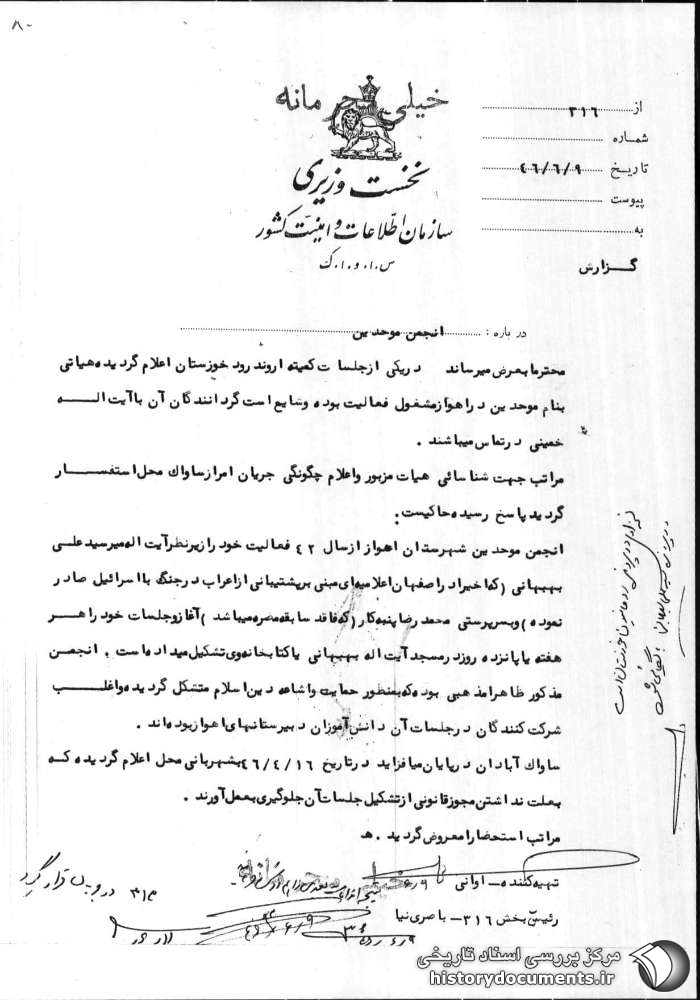 ۸۰
خیلی محرمانه
از ۳۱۶
شماره
تاریخ ۴۶/۶/۹
پیوست
به
نخست وزیری
سازمان اطلاعات و امنیت کشور
س.ا.و.ا.ک
گزارش
درباره : انجمن موحدین
محترما بعرض میرساند دریکی ازجلسات کمیته اروند رود خوزستان اعلام گردیده هیاتی
بنام موحدین دراهوازمشغول فعالیت بوده وشایع است گردانندگان آن باآیت اله
خمینی درتماس میباشند .
مراتب جهت شناسائی هیات مزبور واعلام چگونگی جریان امرازساواک محل استفسار
گردید پاسخ رسیده حاکیست:
انجمن موحدین شهرستان اهواز ازسال ۴۲ فعالیت خود رازیرنظرآیت اله میرسیدعلی
بهبهانی (که اخیرا دراصفهان اعلامیه ای مبنی برپشتیبانی ازاعراب درجنگ بااسرائیل صادر
نموده) وبسرپرستی محمدرضا پنبه کار (که فاقد سابقه مضره میباشد) آغازوجلسات خود راهر
هفته یاپانزده روزدرمسجد آیت اله بهبهانی یاکتابخانه وی تشکیل میداده است . انجمن
مذکور ظاهرا مذهبی بوده که بمنظور حمایت واشاعه دین اسلام متشکل گردیده واغلب
شرکت کنندگان درجلسات آن دانش آموزان دبیرستانهای اهوازبوده اند .
ساواک آبادان درپایان میافزاید درتاریخ ۴۶/۴/۱۶ بشهربانی محل اعلام گردیده که
بعلت نداشتن مجوزقانونی ازتشکیل جلسات آن جلوگیری بعمل آورند .
مراتب استحضارا معروض گردید . ه
تهیه کننده – اوانی
رئیس بخش ۳۱۶ – باصری نیا
۳۱۶
خیلی محرمانه
مرکز بررسی اسناد تاریخی
historydocuments.ir